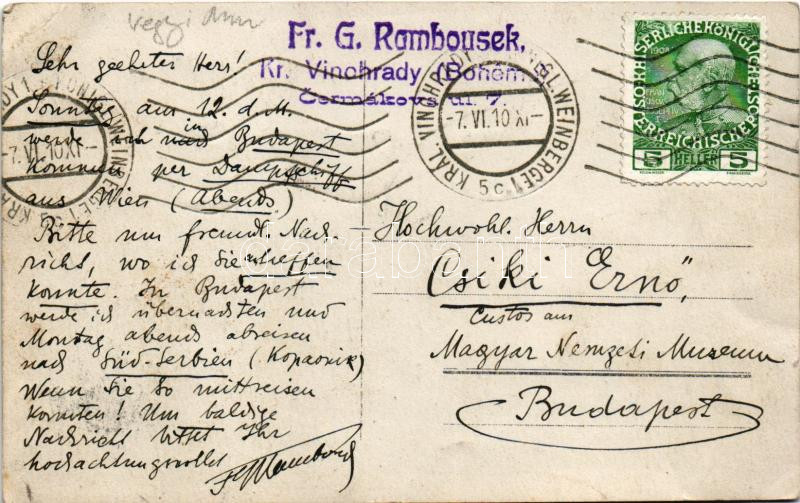 Fr. G. Rambousek,
Kr. Vinohrady (Bohem
Čermákova ul. 7.
KRÁL. VINOHRADY 1 KÖNIGL. WEINBERGE 1
-7.VI.10 XI-
5c
KAISERLICHE KÖNIGLICHE
ÖSTERREICHISCHE POST
1908
5 HELLER 5
Sehr geehrter Herr!
Sonntag am 12. d. M.
werde ich nach in Budapest
kommen per Dampfschiff
aus Wien (Abends)
Bitte um freundl. Nach-
richt, wo ich Sie treffen
konnte. In Budapest
werde ich übernachten und
Montag abends abreisen
nach Süd-Serbien (Kopaonik)
Wenn Sie so mitreisen
konnten! Um baldige
Nachricht bittet Ihr
hochachtungsvollst
Hochwohl. Herrn
Csiki Ernő,
Custos am
Magyar Nemzeti Muzeum
Budapest
darabanth